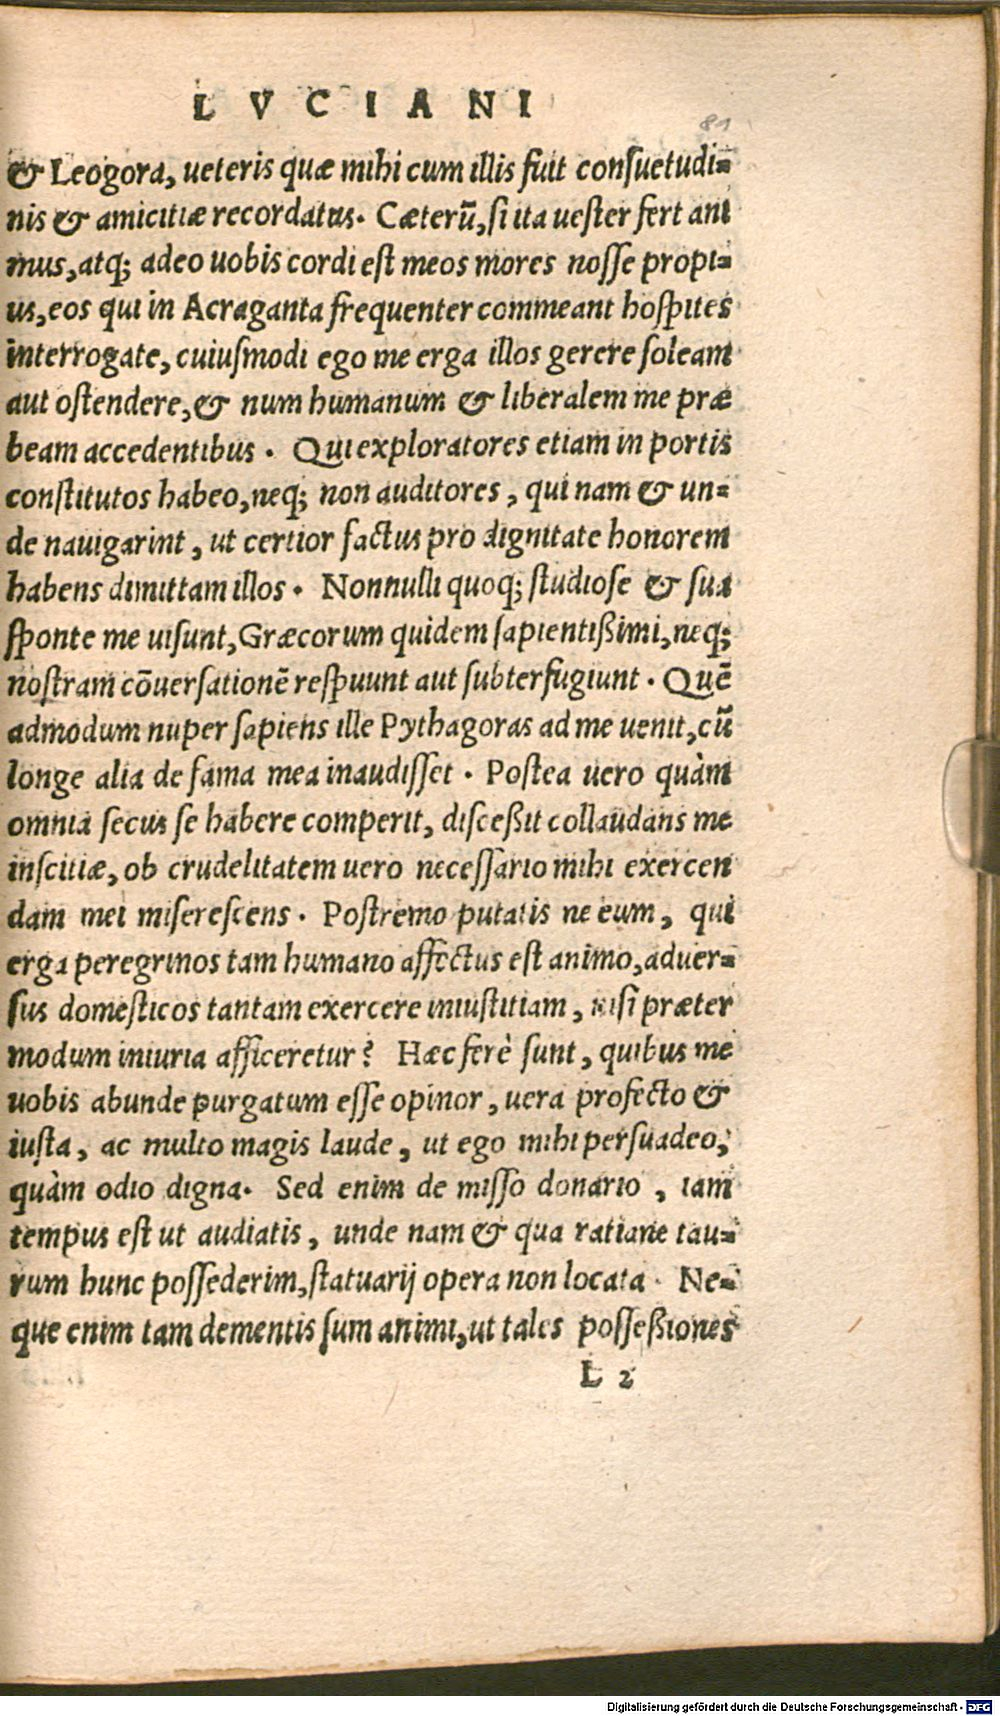 LVCIANI
81
& Leogora, ueteris quæ mihi cum illis fuit consuetudi=
nis & amicitiæ recordatus. Cæterū, si ita uester fert ani
mus, atq; adeo uobis cordi est meos mores nosse propi=
us, eos qui in Acraganta frequenter commeant hospites
interrogate, cuiusmodi ego me erga illos gerere soleam
aut ostendere, & num humanum & liberalem me præ
beam accedentibus. Qui exploratores etiam in portis
constitutos habeo, neq; non auditores, qui nam & un=
de nauigarint, ut certior factus pro dignitate honorem
habens dimittam illos. Nonnulli quoq; studiose & sua
sponte me uisunt, Græcorum quidem sapientißimi, neq;
nostram cōuersationē respuunt aut subterfugiunt. Quē
admodum nuper sapiens ille Pythagoras ad me uenit, cū
longe alia de fama mea inaudisset. Postea uero quàm
omnia secus se habere comperit, disceßit collaudans me
inscitiæ, ob crudelitatem uero necessario mihi exercen
dam mei miserescens. Postremo putatis ne eum, qui
erga peregrinos tam humano affectus est animo, aduer=
sus domesticos tantam exercere iniustitiam, nisi præter
modum iniuria afficeretur? Hæc ferè sunt, quibus me
uobis abunde purgatum esse opinor, uera profecto &
iusta, ac multo magis laude, ut ego mihi persuadeo,
quàm odio digna. Sed enim de misso donario, iam
tempus est ut audiatis, unde nam & qua ratiane tau=
rum hunc possederim, statuarij opera non locata. Ne=
que enim tam dementis sum animi, ut tales posseßiones
L 2
Digitalisierung gefördert durch die Deutsche Forschungsgemeinschaft - DFG